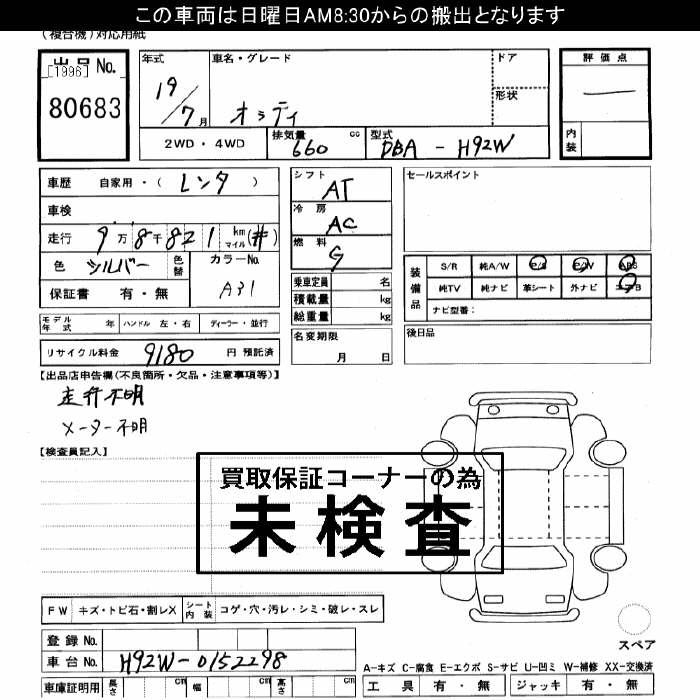 この車両は日曜日AM8:30からの搬出となります
(複合機)対応用紙
出品No.
[1996]
80683
年式 19/7月
車名・グレード
オッティ
ドア
形状
評価点
内装
2WD・4WD
排気量 660 cc
型式 DBA - H92W
車歴 自家用・(レンタ)
車検
走行 9万8千821 km マイル (#)
色 シルバー 色替
カラーNo. A31
保証書 有・無
シフト AT
冷房 AC
燃料 G
乗車定員 名
積載量 kg
総重量 kg
セールスポイント
装備品
S/R 純A/W P/S P/W ABS
純TV 純ナビ 革シート 外ナビ エアB
ナビ型番:
モデル年式 年 ハンドル 左・右 ディーラー・並行
名変期限 月 日
後日品
リサイクル料金 9180 円 預託済
【出品店申告欄(不良箇所・欠品・注意事項等)】
走行不明
メーター不明
【検査員記入】
買取保証コーナーの為
未検査
FW キズ・トビ石・割レX シート内装 コゲ・穴・汚レ・シミ・破レ・スレ
スペア
登録No.
車台No. H92W-0152298
A-キズ C-腐食 E-エクボ S-サビ U-凹ミ W-補修 XX-交換済
車庫証明用 長さ cm 幅 cm 高さ cm
工具 有・無 ジャッキ 有・無